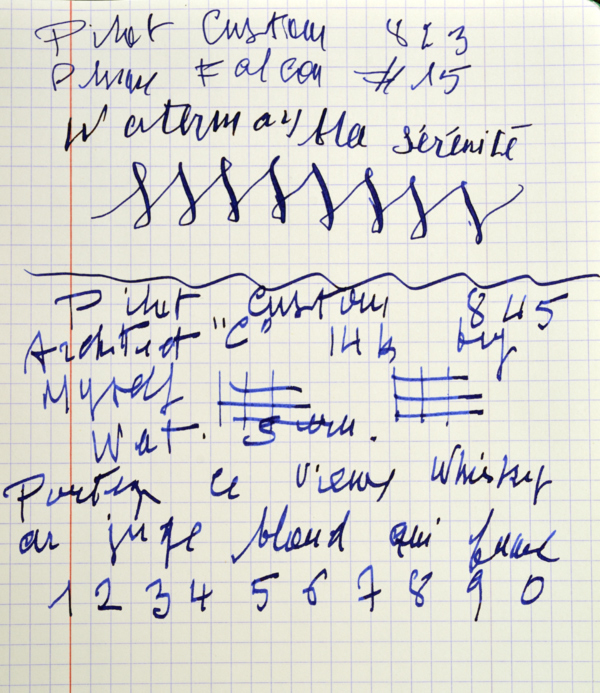 Pilot Custom 823
Plume Falcon #15
Waterman bleu sérénité
Pilot Custom 845
Architect "C" 14k by
Myself
Wat. Seren.
Portez ce vieux whisky
au juge blond qui fume
1 2 3 4 5 6 7 8 9 0